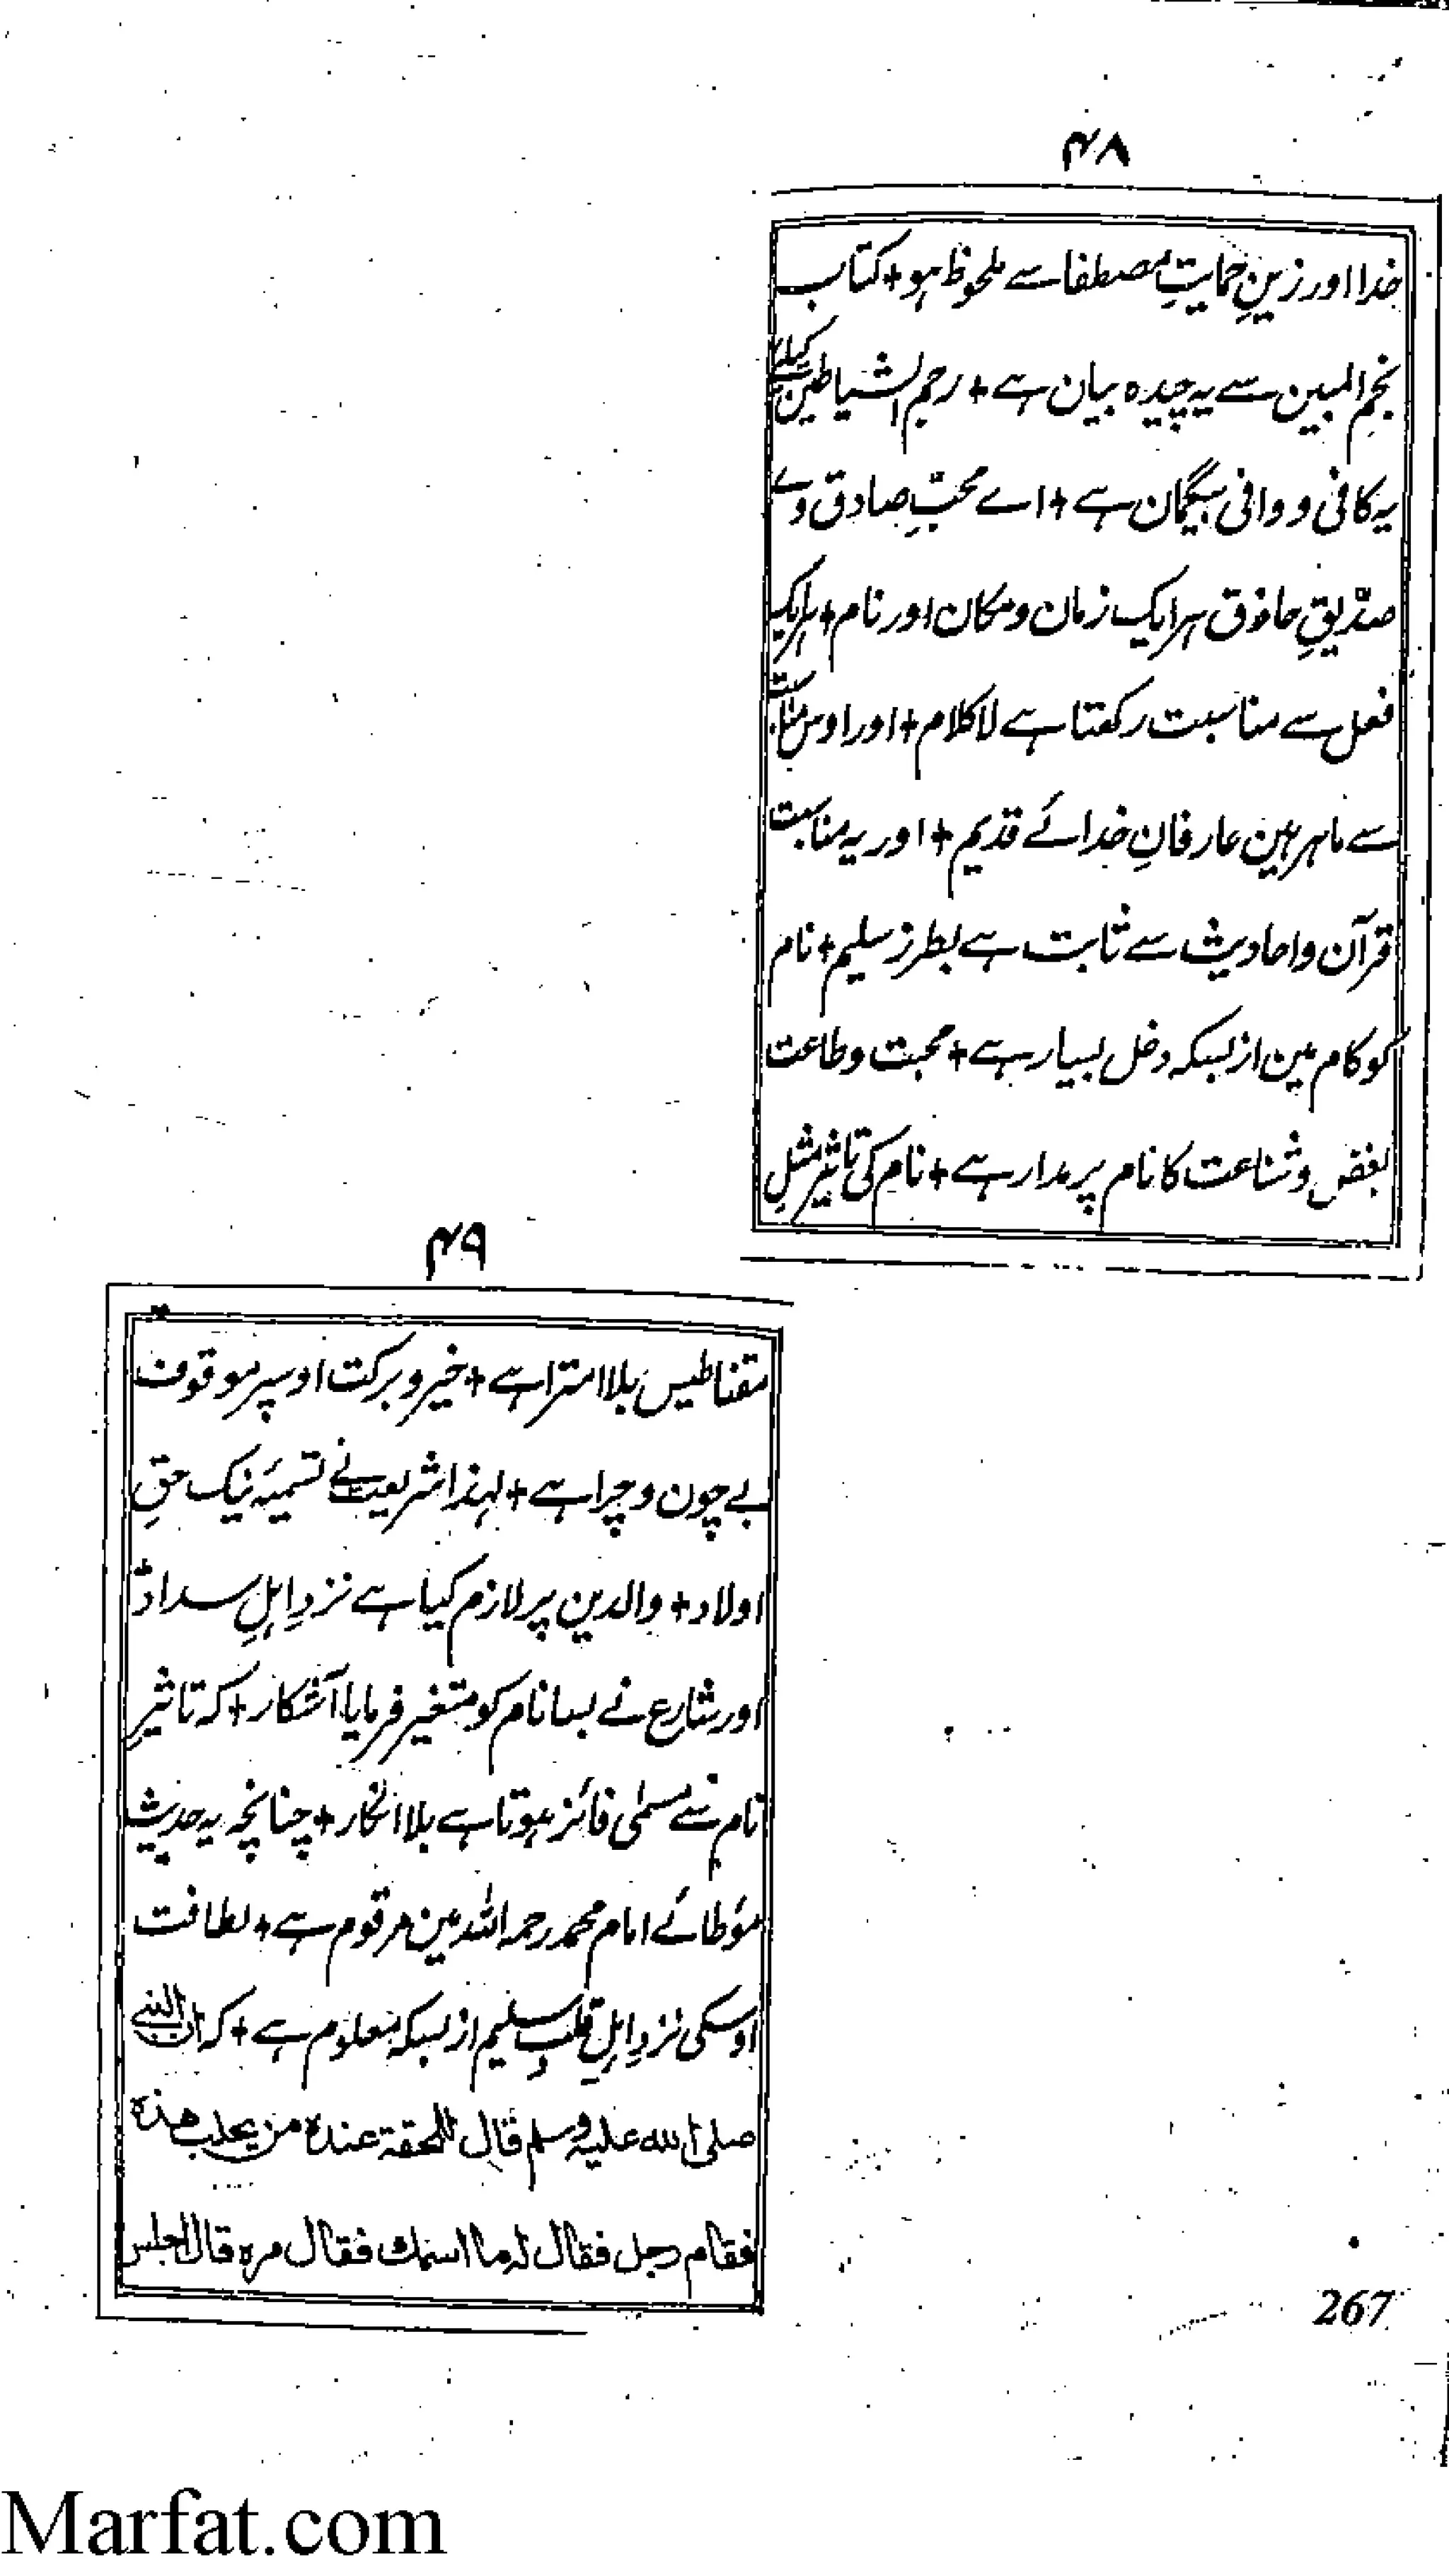 ۴۸
خدا اور زینِ حمایتِ مصطفا سے ملحوظ ہو + کتاب
نجم المبین سے یہ چیدہ بیان ہے + رجم الشیاطین کیلئے
یہ کافی و وافی بیگمان ہے + اے محبِّ صادق وے
صدّیقِ حاذق ہر ایک زمان و مکان اور نام + ہر ایک
فعل سے مناسبت رکھتا ہے لا کلام + اور اوس
سے ماہر ہین عارفانِ خدائے قدیم + اور یہ مناسبت
قرآن و احادیث سے ثابت ہے بطرز سلیم + نام
کو کام مین از بسکہ دخل بسیار ہے + محبت و طاعت
بغض و شناعت کا نام پر مدار ہے + نام کی تاثیر مثلِ
۴۹
مقناطیس بلا امترا ہے + خیر و برکت اوسپر موقوف
بے چون و چرا ہے + لہذا شریعت نے تسمیۂ نیک حقِ
اولاد + والدین پر لازم کیا ہے نزدِ اہلِ سداد
اور شارع نے بسا نام کو متغیر فرمایا آشکار + کہ تاثیرِ
نام سے مسمّٰی فائز ہوتا ہے بلا انکار + چنانچہ یہ حدیث
مؤطائے امام محمد رحمہ اللہ مین مرقوم ہے + لطافت
اوسکی نزدِ اہلِ قلبِ سلیم از بسکہ معلوم ہے + کہ ان النبے
صلی اللہ علیہ وسلم قال للحقة عندہ من یحلب ھذہ
فقام رجل فقال لہ ما اسمك فقال مرہ قال اجلس
267
Marfat.com